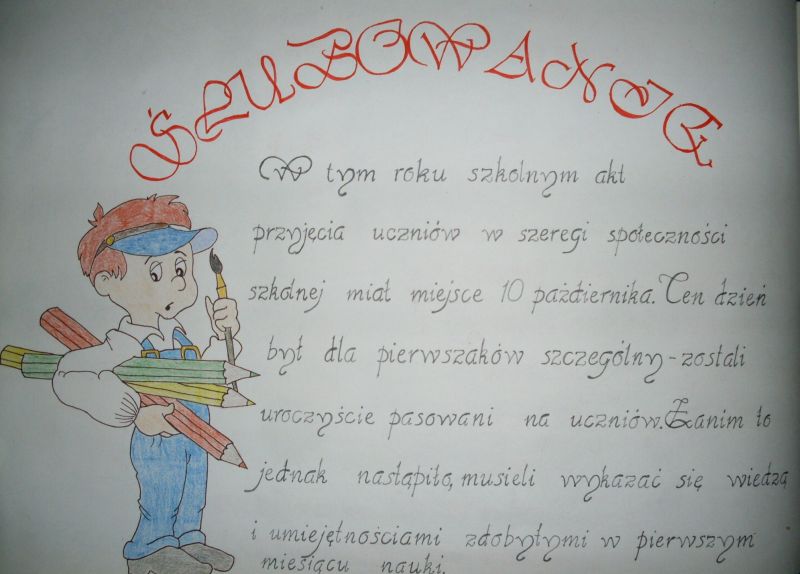 ŚLUBOWANIE
W tym roku szkolnym akt
przyjęcia uczniów w szeregi społeczności
szkolnej miał miejsce 10 października. Ten dzień
był dla pierwszaków szczególny - zostali
uroczyście pasowani na uczniów. Zanim to
jednak nastąpiło, musieli wykazać się wiedzą
i umiejętnościami zdobytymi w pierwszym
miesiącu nauki.